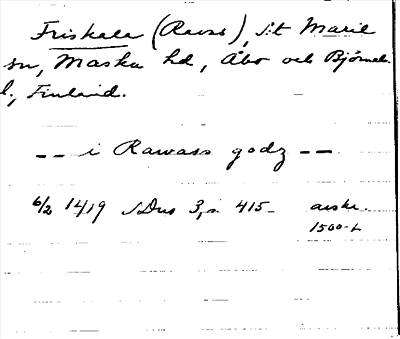 Friskala (Ravas), S:t Marie
sn, Masku hd, Åbo och Björneb.
l., Finland.
-- i Rawass godz --
6/2 1419 SDns 3, s. 415- avskr.
1500-t.